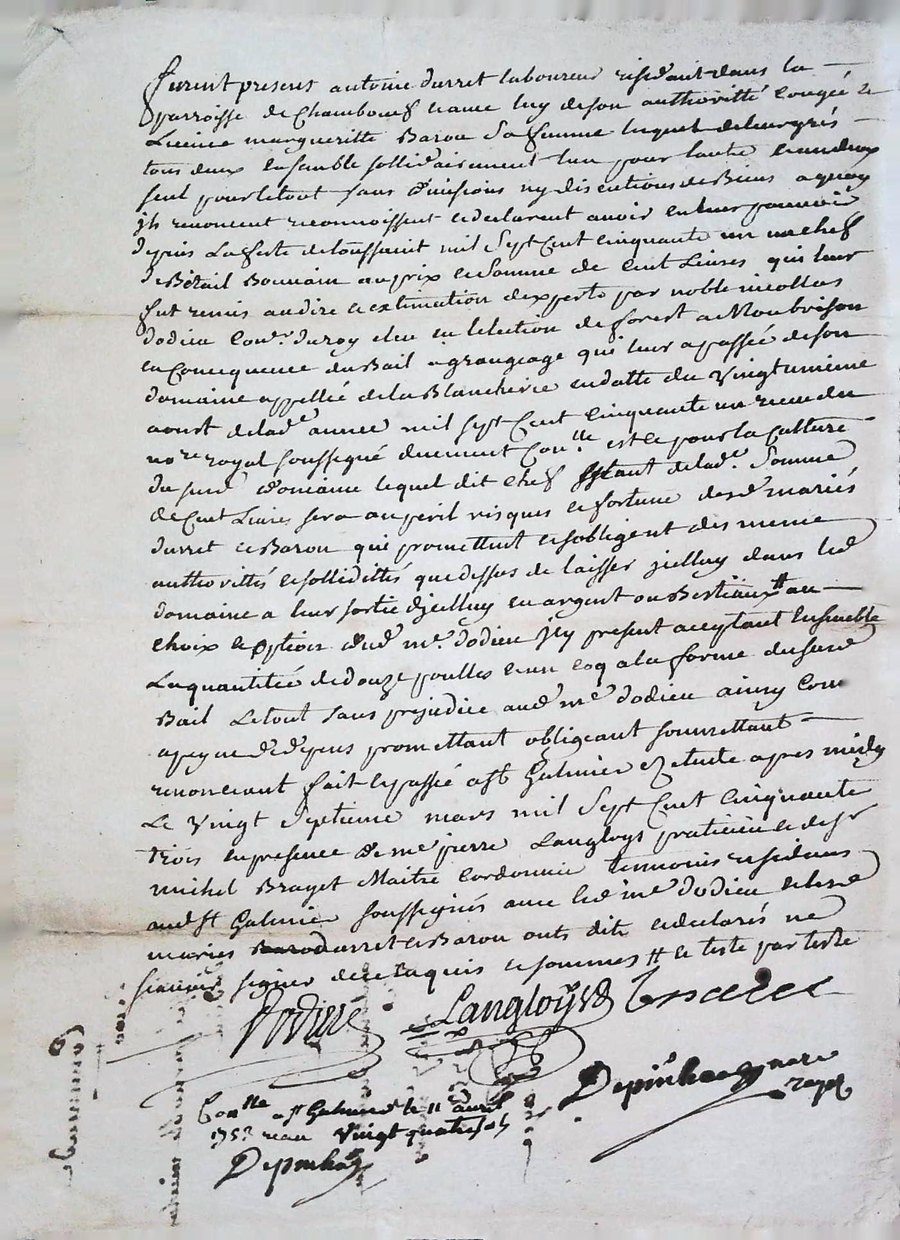 Furent presents antoine durret laboureur residant dans la
parroisse de Chambœuf et avec luy de son authorité congée et
Licence margueritte Baron sa femme lesquel de leur grés
tous deux ensemble sollidairement l'un pour lautre et un deux
seul pour le tout sans divisions ny discutions de Biens a quoy
ils renoncent reconnoissent et declarent avoir en leur pouvoir
depuis La feste de toussaint mil Sept Cent Cinquante un un chef
de Bétail Bouvain au prix et Somme de Cent Livres qui leur
fut remis au dire et extimation d'experts par noble nicollas
dodieu Con.er du roy eleu en lelection de forest a Monbrison
en Consequence du Bail a grangeage qui leur a passée de son
domaine appellée de la Blancherie en datte du Vingtunieme
aoust de lad.e année mil sept Cent Cinquante un receu du
no.re royal soussigné duement Con.llé est ce pour la Culture
du susd domaine lequel dit chef Estant de lad.e Somme
de Cent Livres sera au peril risques et fortune desd mariés
durret et Baron qui promettent et sobligent des meme
authorittés et sollidittés que dessus de laisser jcelluy dans led
domaine a leur sortie djcelluy en argent ou Bestiaux # au
choix et option dud m.e dodieu jcy present acceptant Ensemble
La quantitée de douze poulles et un coq a la forme du susd
Bail Le tout sans prejudice aud me dodieu ainsy Com
a peyne de depens promettant obligeant soumettant
renoncant fait et passée a St Galmier Ez etude apres midy
Le Vingt Septieme mars mil Sept Cent Cinquante
trois en presence de me pierre Langloys praticien et de sr
michel Brayet Maitre Cordonnier temmoins residans
aud St Galmier soussignés avec led me dodieu et lesd
mariés durret et Baron onts dit et declarés ne
scavoir signer de ce enquis et sommés # et teste par teste
Dodieu
Langloys
Depinhac nore
royal
Con.llé a St Galmier le 11 avril
1753 receu Vingt quatre sols
Depinhac